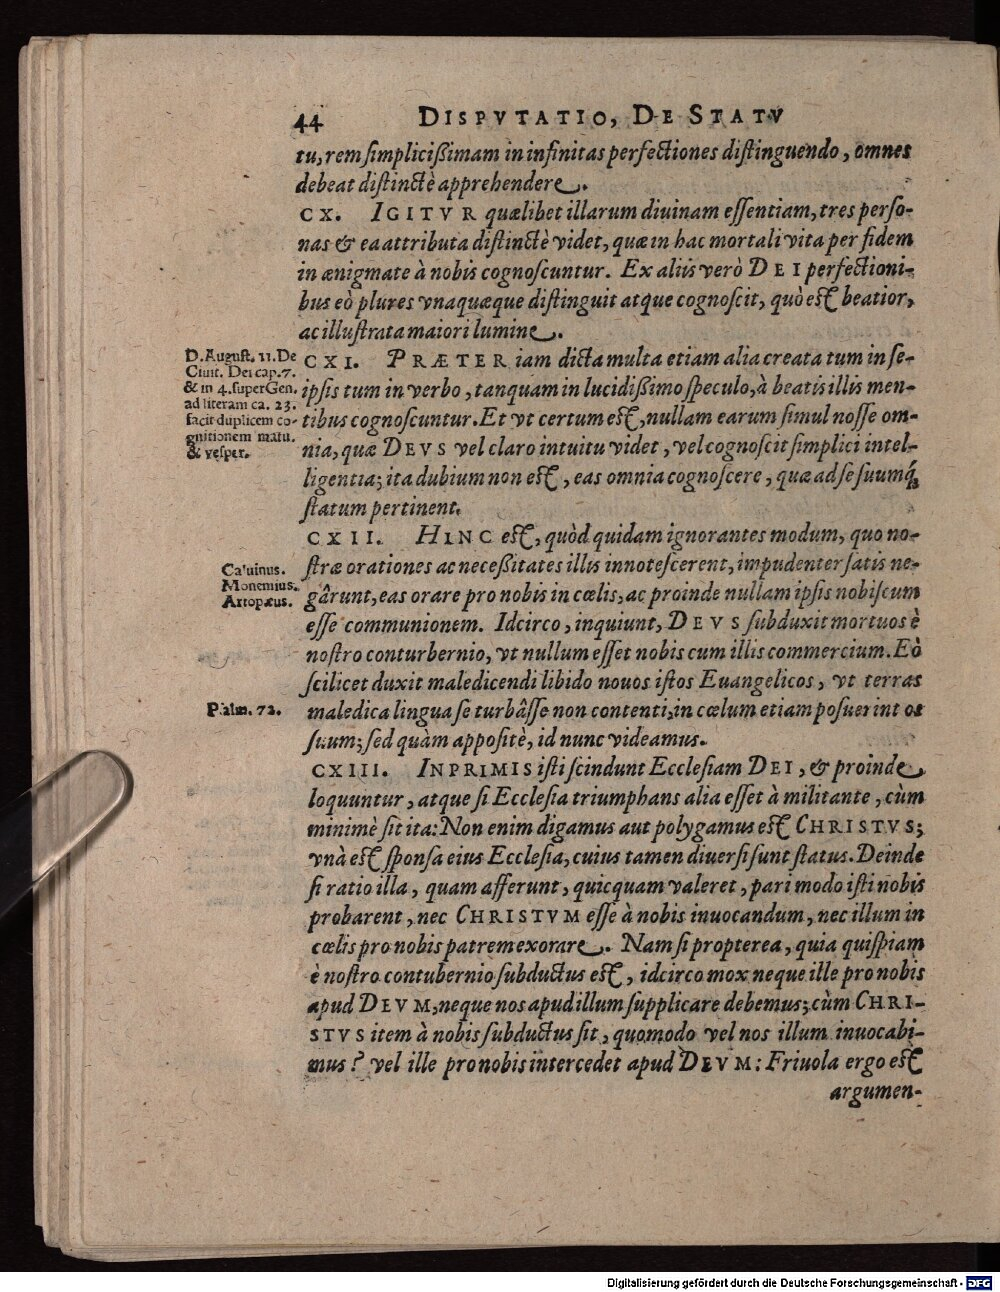 44 DISPVTATIO, DE STATV
tu, rem simplicißimam in infinitas perfectiones distinguendo, omnes
debeat distinctè apprehendere.
CX. IGITVR quælibet illarum diuinam essentiam, tres perso-
nas & ea attributa distinctè videt, quæ in hac mortali vita per fidem
in ænigmate à nobis cognoscuntur. Ex aliis verò DEI perfectioni-
bus eò plures vnaquæque distinguit atque cognoscit, quò est beatior,
ac illustrata maiori lumine.
D. August. 11. De
Ciuit. Dei cap. 7.
& in 4. super Gen.
ad literam ca. 23.
facit duplicem co-
gnitionem matu.
& vesper.
CXI. PRÆTER iam dicta multa etiam alia creata tum in se-
ipsis tum in verbo, tanquam in lucidißimo speculo, à beatis illis men-
tibus cognoscuntur. Et vt certum est, nullam earum simul nosse om-
nia, quæ DEVS vel claro intuitu videt, vel cognoscit simplici intel-
ligentia; ita dubium non est, eas omnia cognoscere, quæ ad se suumq́;
statum pertinent.
CXII. HINC est, quòd quidam ignorantes modum, quo no-
Caluinus.
Monemius.
Artopæus.
stræ orationes ac neceßitates illis innotescerent, impudenter satis ne-
gârunt, eas orare pro nobis in cœlis, ac proinde nullam ipsis nobiscum
esse communionem. Idcirco, inquiunt, DEVS subduxit mortuos è
nostro conturbernio, vt nullum esset nobis cum illis commercium. Eò
scilicet duxit maledicendi libido nouos istos Euangelicos, vt terras
Psalm. 72.
maledica lingua se turbâsse non contenti, in cœlum etiam posuerint os
suum; sed quàm appositè, id nunc videamus.
CXIII. INPRIMIS isti scindunt Ecclesiam DEI, & proinde
loquuntur, atque si Ecclesia triumphans alia esset à militante, cùm
minimè sit ita: Non enim digamus aut polygamus est CHRISTVS;
vnà est sponsa eius Ecclesia, cuius tamen diuersi sunt status. Deinde
si ratio illa, quam afferunt, quicquam valeret, pari modo isti nobis
probarent, nec CHRISTVM esse à nobis inuocandum, nec illum in
cœlis pro nobis patrem exorare. Nam si propterea, quia quispiam
è nostro contubernio subductus est, idcirco mox neque ille pro nobis
apud DEVM, neque nos apud illum supplicare debemus; cùm CHRI-
STVS item à nobis subductus sit, quomodo vel nos illum inuocabi-
mus? vel ille pro nobis intercedet apud DEVM: Friuola ergo est
argumen-
Digitalisierung gefördert durch die Deutsche Forschungsgemeinschaft - DFG